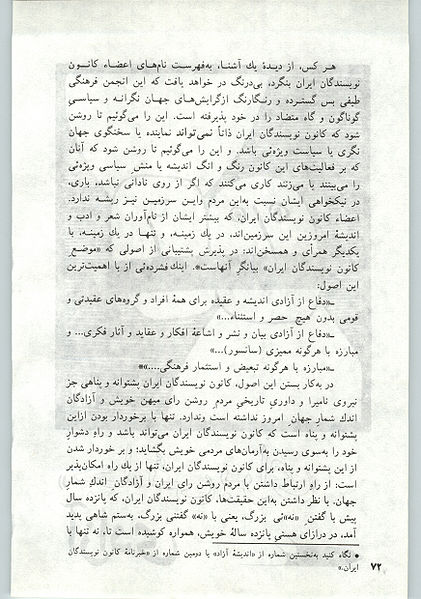 هر کس، از دیدهٔ یك آشنا، به‌فهرست نام‌های اعضاء کانون
نویسندگان ایران بنگرد، بی‌درنگ در خواهد یافت که این انجمن فرهنگی
طیفی بس گسترده و رنگارنگ ازگرایش‌های جهان نگرانه و سیاسی
گوناگون و گاه متضاد را در خود پذیرفته است. این را می‌گوئیم تا روشن
شود که کانون نویسندگان ایران ذاتاً نمی‌تواند نماینده یا سخنگوی جهان
نگری یا سیاست ویژه‌ئی باشد. و این را می‌گوئیم تا روشن شود که آنان
که بر فعالیت‌های این کانون رنگ و انگ اندیشه یا منش سیاسی ویژه‌ئی
را می‌بینند یا می‌زنند کاری می‌کنند که اگر از روی نادانی نباشد، باری،
در نیکخواهی ایشان نسبت به‌این مردم واین سرزمین نیز ریشه ندارد.
اعضاء کانون نویسندگان ایران، که بیشتر ایشان از نام‌آوران شعر و ادب و
اندیشهٔ امروزین این سرزمین‌اند، در یك زمینه، و تنها در یك زمینه، با
یکدیگر همرأی و همسخن‌اند: در پذیرش پشتیبانی از اصولی که «موضع
کانون نویسندگان ایران» بیانگر آنهاست*. اینك فشرده‌ئی از با اهمیت‌ترین
این اصول:
ـ«دفاع از آزادی اندیشه و عقیده برای همهٔ افراد و گروه‌های عقیدتی و
قومی بدون هیچ حصر و استثناء...»
ـ«دفاع از آزادی بیان و نشر و اشاعهٔ افکار و عقاید و آثار فکری... و
مبارزه با هرگونه ممیزی (سانسور)...»
ـ«مبارزه با هرگونه تبعیض و استثمار فرهنگی....»*
در به‌کار بستن این اصول، کانون نویسندگان ایران پشتوانه و پناهی جز
نیروی نامیرا و داوری تاریخیِ مردم روشن رای میهن خویش و آزادگان
اندك شمار جهان امروز نداشته است وندارد. تنها با برخوردار بودن ازاین
پشتوانه و پناه است که کانون نویسندگان ایران می‌تواند باشد و راه دشوار
خود را به‌سوی رسیدن به‌آرمان‌های مردمی خویش بگشاید؛ و بر خوردار شدن
از این پشتوانه و پناه، برای کانون نویسندگان ایران، تنها از یك راه امکان‌پذیر
است: از راهِ ارتباط داشتن با مردم روشن رای ایران و آزادگان اندك شمار
جهان. با نظر داشتن به‌این حقیقت‌ها، کانون نویسندگان ایران، که پانزده سال
پیش با گفتن «نه»ئی بزرگ، یعنی با «نه» گفتنی بزرگ، به‌ستم شاهی پدید
آمد، در درازای هستی پانزده سالهٔ خویش، همواره کوشیده است تا، نه تنها با
* نگاه کنید به‌نخستین شماره از «اندیشهٔ آزاد» یا دومین شماره از «خبرنامهٔ کانون نویسندگان
ایران.»
۷۲